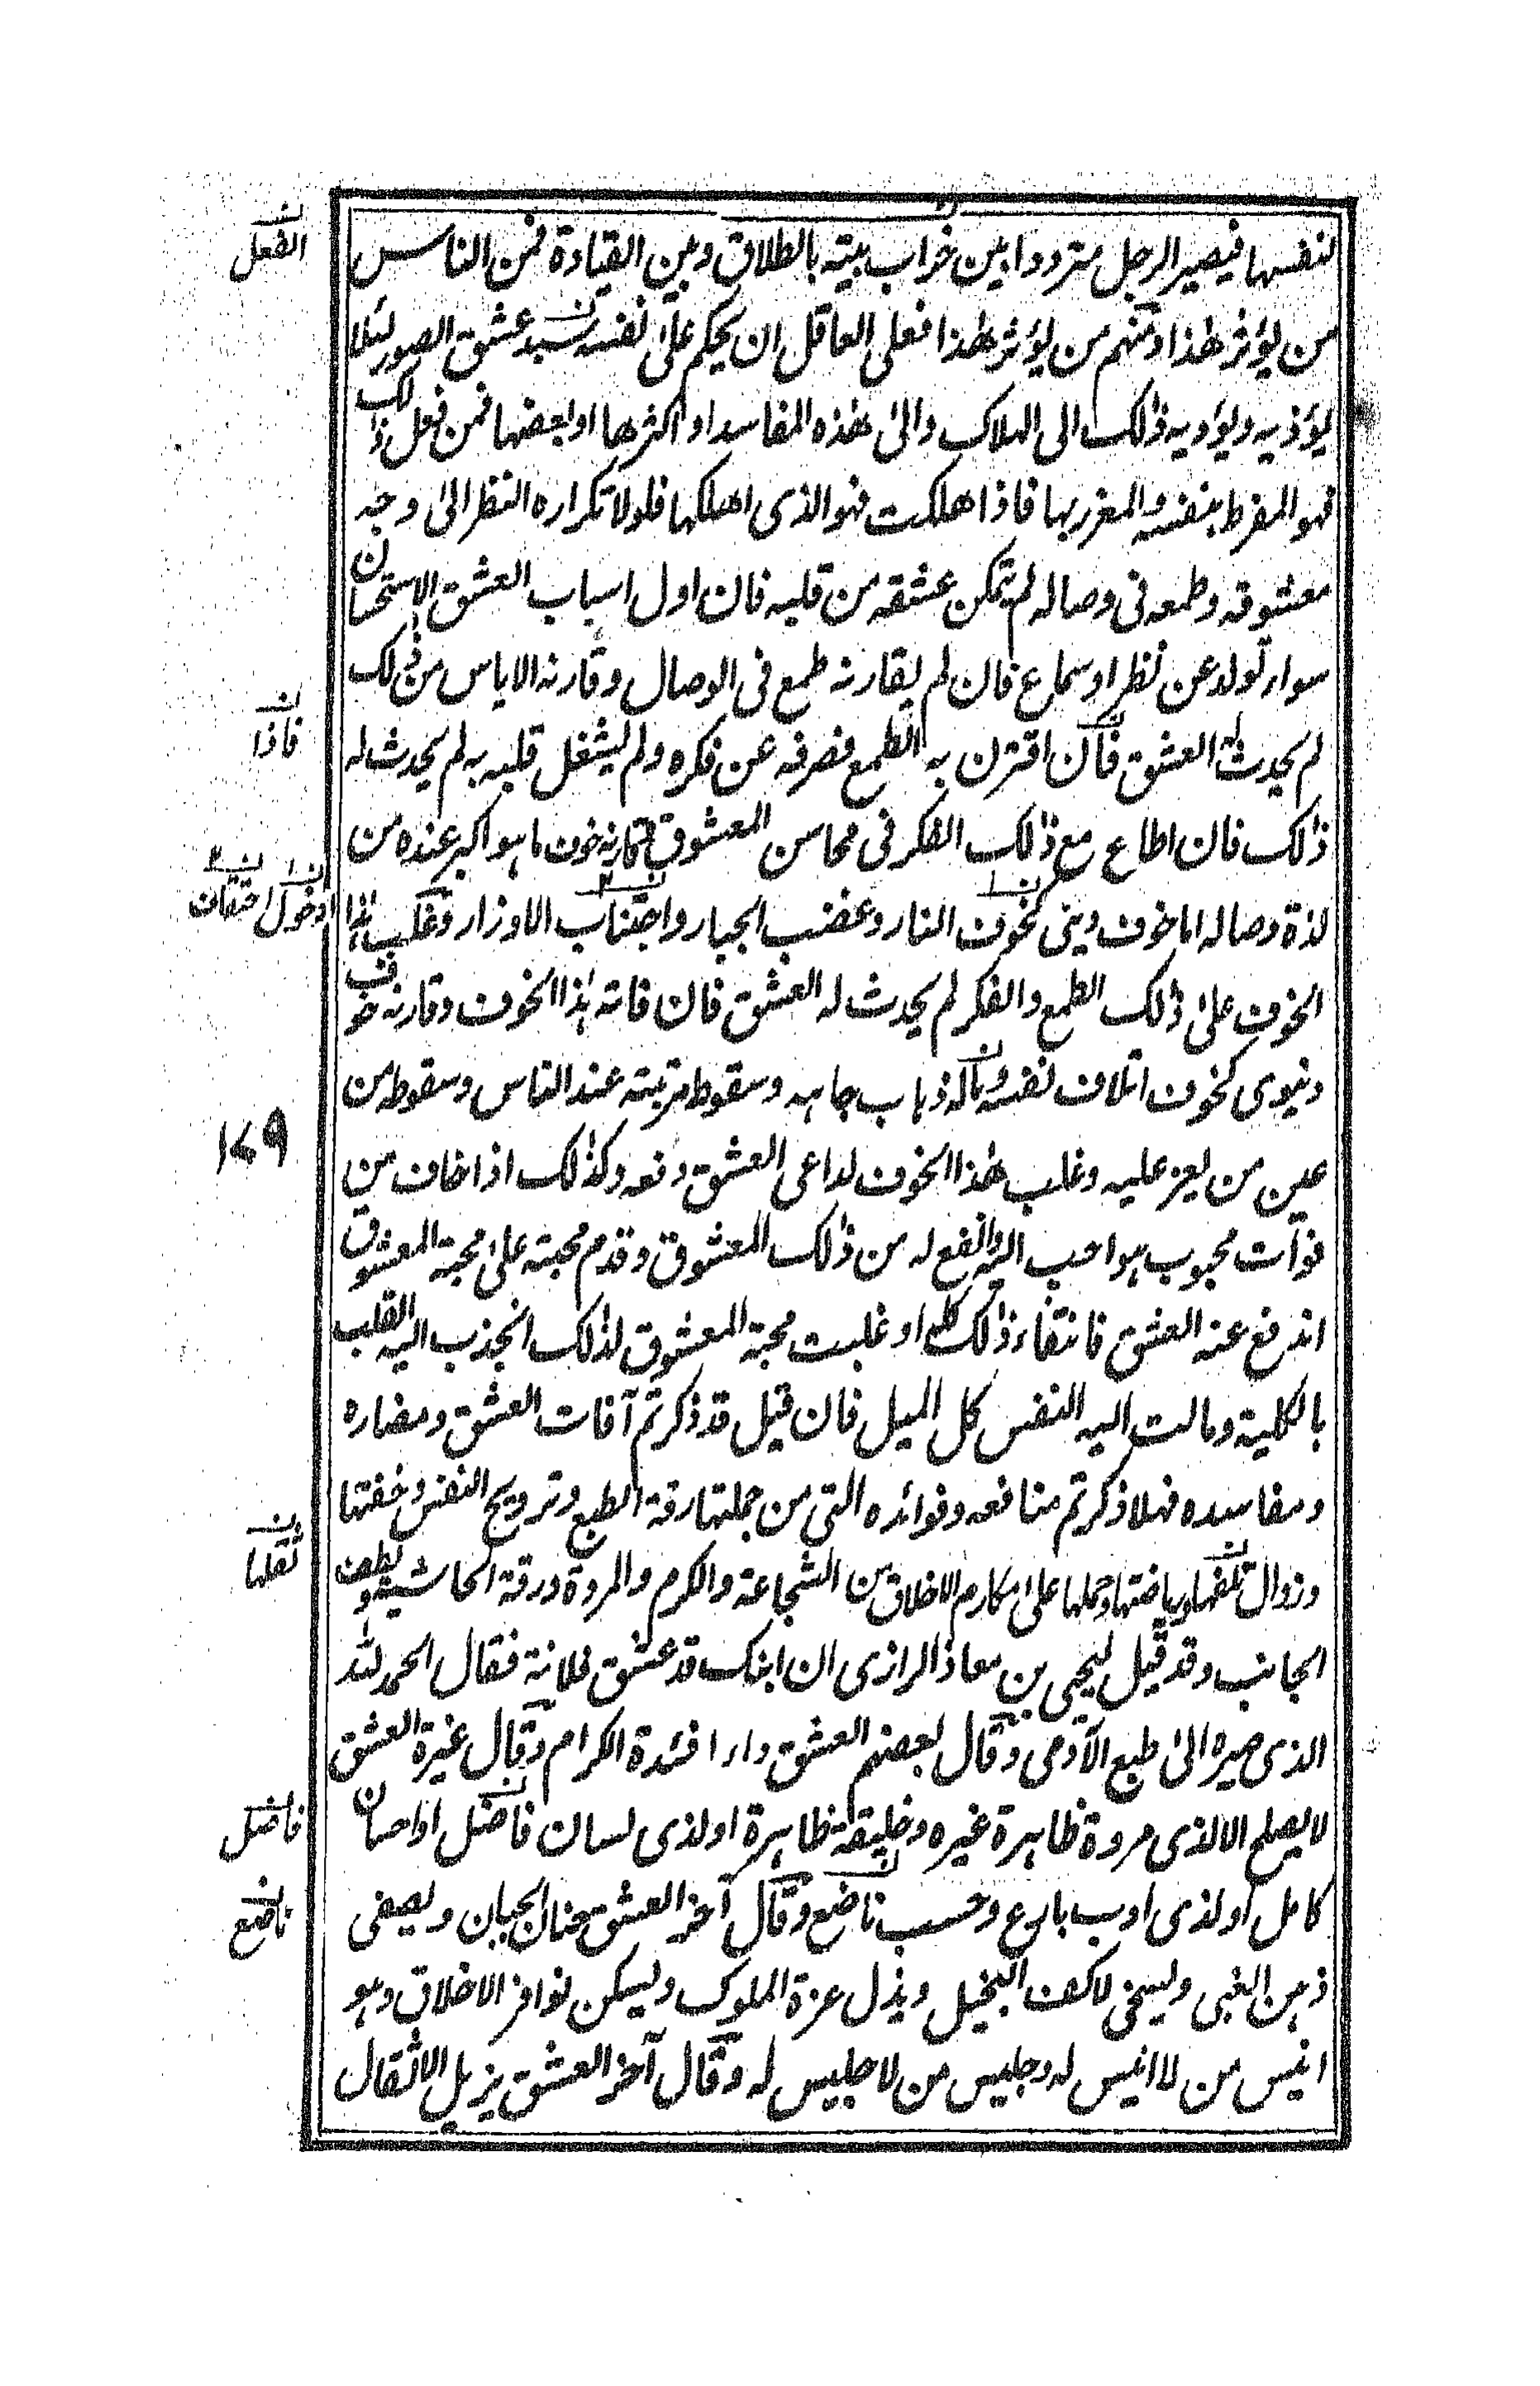 لنفسها فيصير الرجل مترددا بين خراب بيته بالطلاق وبين القيادة فمن الناس
من يؤثر هذا ومنهم من يؤثر هذا فعلى العاقل ان يحكم على نفسه بسد عشق الصور لئلا
يؤذيه ويؤديه ذلك الى الهلاك والى هذه المفاسد او اكثرها او بعضها فمن فعل ذلك
فهو المفرط بنفسه والمغرر بها فاذا هلكت فهو الذى اهلكها فلولا تكراره النظر الى وجه
معشوقه وطمعه فى وصاله لم يتمكن عشقه من قلبه فان اول اسباب العشق الاستحسان
سواء تولد عن نظر او سماع فان لم يقارنه طمع فى الوصال وقارنه الاياس من ذلك
لم يحدث له العشق فان اقترن به الطمع فصرفه عن فكره ولم يشغل قلبه به لم يحدث له
ذلك فان اطاع مع ذلك الفكر فى محاسن المعشوق وقارنه خوف ما هو اكبر عنده من
لذة وصاله اما خوف دينى كخوف النار وغضب الجبار واجتناب الاوزار وغلب هذا
الخوف على ذلك الطمع والفكر لم يحدث له العشق فان فاته هذا الخوف وقارنه خوف
دنيوى كخوف اتلاف نفسه وماله ذهاب جاهه وسقوط مرتبته عند الناس وسقوطه من
عين من يعز عليه وغلب هذا الخوف لداعى العشق دفعه وكذلك اذا خاف من
فوات محبوب هو احب اليه وانفع له من ذلك المعشوق وقدم محبته على محبة المعشوق
اندفع عنه العشق فانتفاء ذلك كله او غلبت محبة المعشوق لذلك انجذب اليه القلب
بالكلية ومالت اليه النفس كل الميل فان قيل قد ذكرتم آفات العشق ومضاره
ومفاسده فهلا ذكرتم منافعه وفوائده التى من جملتها رقة الطبع وترويح النفس وخفتها
وزوال تلفها ورياضتها وحملها على مكارم الاخلاق من الشجاعة والكرم والمروة ورقة الحاشية ولطف
الجانب وقد قيل ليحيى بن معاذ الرازى ان ابنك قد عشق فلانة فقال الحمد لله
الذى صيره الى طبع الآدمى وقال بعضهم العشق داء افئدة الكرام وقال غيره العشق
لا يصلح الا لذى مروة ظاهرة غيره وخليقة ظاهرة او لذى لسان فاضل او احسان
كامل او لذى ادب بارع وحسب ناضع وقال آخر العشق جنان الجبان ويصفى
ذهن الغبى ويسخى لا كف البخيل ويذل عزة الملوك ويسكن نوافر الاخلاق وهو
انيس من لا انيس له وجليس من لا جليس له وقال آخر العشق يزيل الاثقال
ن الفعل
ن فاذا
ن١ دخول ن٢ احتقاف
١٧٩
ن ثقلها
ن فاضل
ن ناصع